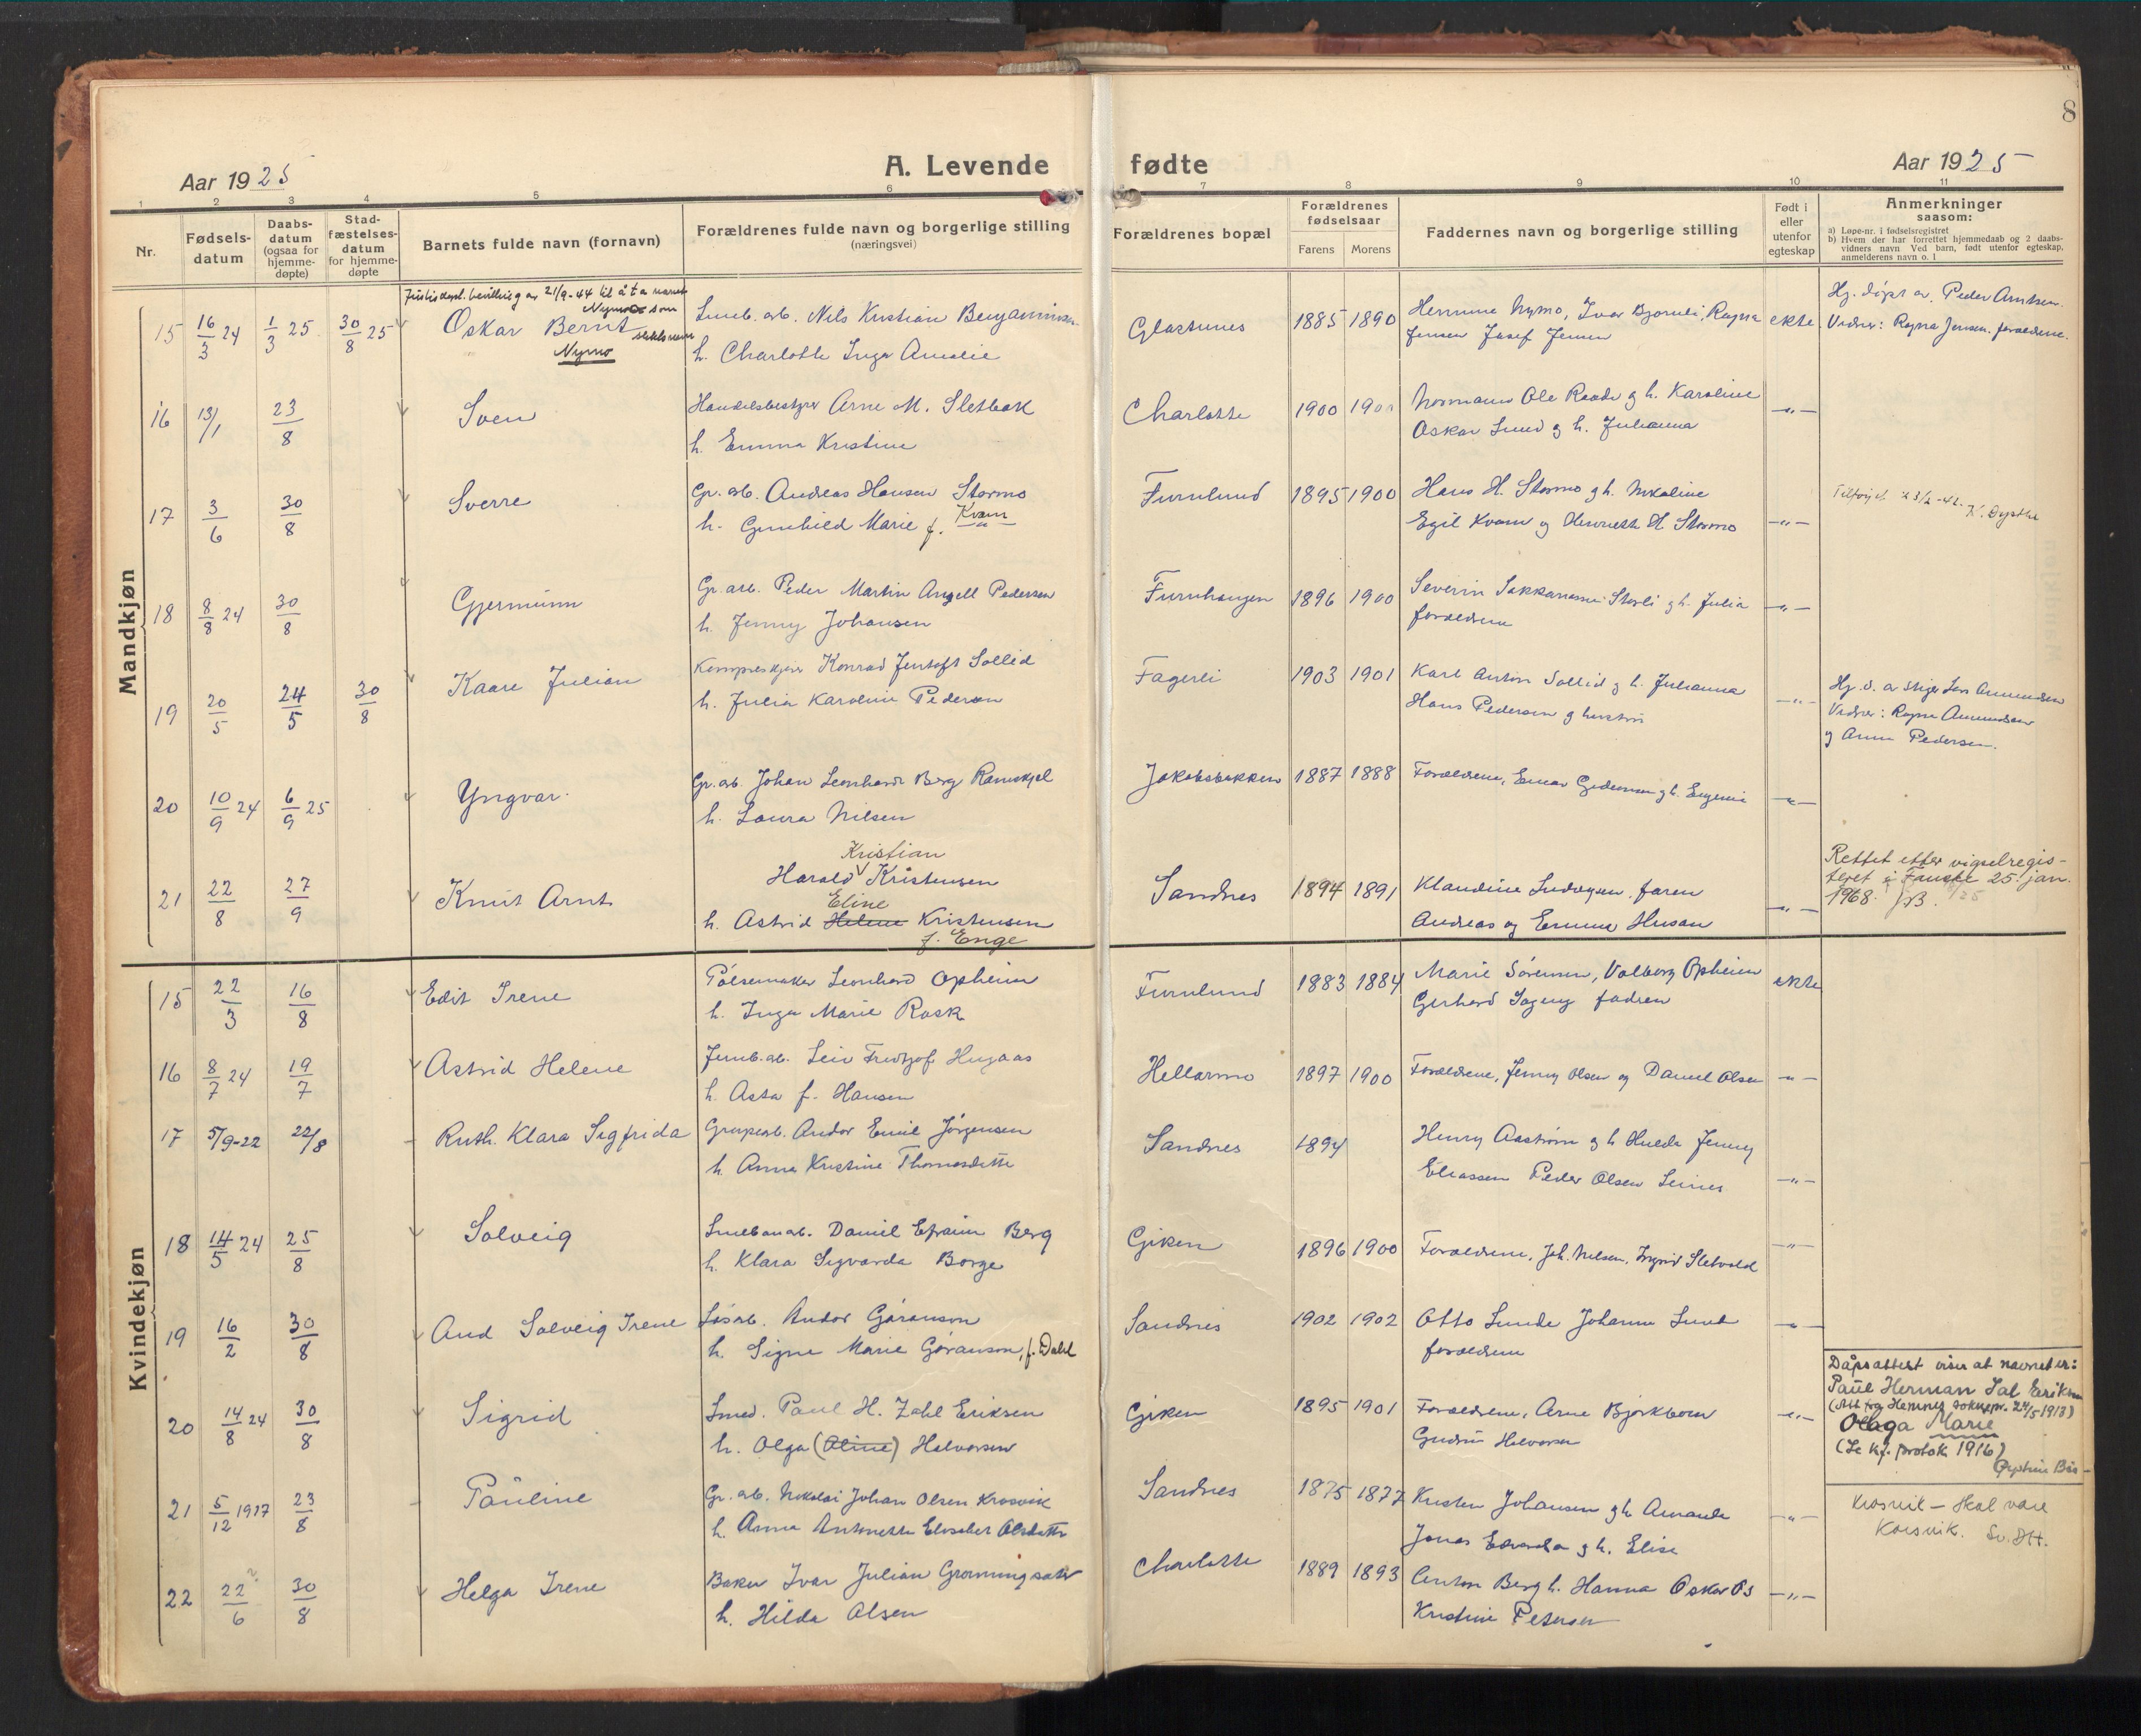 8
Aar 1925
A. Levende fødte
Aar 1925
1 2 3 4 5 6 7 8 9 10 11
Nr.
Fødsels-
datum
Daabs-
datum
(ogsaa for
hjemme-
døpte)
Stad-
fæstelses-
datum
for hjemme-
døpte
Barnets fulde navn (fornavn)
Forældrenes fulde navn og borgerlige stilling
(næringsvei)
Forældrenes bopæl
Forældrenes
fødselsaar
Farens Morens
Faddernes navn og borgerlige stilling
Født i
eller
utenfor
egteskap
Anmerkninger
saasom:
a) Løpe-nr. i fødselsregistret
b) Hvem der har forrettet hjemmedaab og 2 daabs-
vidners navn Ved barn, født utenfor egteskap,
anmelderens navn o. l
Mandkjøn
Justisdepl. bevilling av 21/9-44 til å ta navnet
Nymo som
slektsnavn
15 16/3 24 1/3 25 30/8 25 Oskar Bernt
Nymo
Smeb. arb. Nils Kristian Benjaminsen
h. Charlotte Inga Amalie
Glastunes 1885 1890
Hermine Nymo, Ivar Bjørnli, Ragna
Jensen Josef Jensen
ekte
Hj. døpt av Peder Arntsen
Vidner: Ragna Jensen, foreldrene.
16 13/1 23/8 Sven
Handelsbestyrer Arne M. Sletbak
h. Emma Kristine
Charlotte 1900 1900
Normann Ole Raade og h. Karoline
Oskar Lund og h. Julianna
—"—
17 3/6 30/8 Sverre
Gr. arb. Andreas Hansen Stormo
h. Gunhild Marie f. Kvam
Furulund 1895 1900
Hans H. Stormo og h. Nikoline
Egil Kvam og Henriette H. Stormo
—"—
Tilføyd 23/2-42. K. Dysthe
18 8/8 24 30/8 Gjermunn
Gr. arb. Peder Martin Angell Pedersen
h. Jenny Johansen
Furuhaugen 1896 1900
Severin Sakkariassen Storli og h. Julia
foreldrene
—"—
19 20/5 24/5 30/8 Kaare Julian
Konrad Jentoft Sollid
h. Julia Karoline Pedersen
Fagerli 1903 1901
Karl Anton Sollid og h. Julianna
Hans Pedersen og hustru
—"—
Hj. d. av stiger Amundsen
Vidner: Ragna Amundsen
og Anna Pedersen.
20 10/9 24 6/9 25 Yngvar
Gr. arb. Johan Leonhard Berg Ramskjel
h. Laura Nilsen
Jakobsbakken 1887 1888
Foreldrene, Einar Gedersen og h. Eugenie
—"—
21 22/8 27/9 Knut Arnt
Kristian
Harald Kristensen
Eline
h. Astrid Helene Kristensen
f. Enge
Sandnes 1894 1891
Klaudine Ludvigsen, faren
Andreas og Emma Husan
—"—
Rettet etter vigselregis-
teret i Fauske 25. jan.
1968. JB.
Kvindekjøn
15 22/3 16/8 Edit Irene
Pølsemaker Leonhard Opheim
h. Inga Marie Rask
Furulund 1883 1884
Marie Sørensen, Valborg Opheim
Gerhard fadren
ekte
16 8/7 24 19/7 Astrid Helene
Jernb. arb. Leiv Fredtjof Hugaas
h. Asta f. Hansen
Hellarmo 1897 1900
Foreldrene, Jenny Olsen og Daniel Olsen
—"—
17 5/9-22 22/8 Ruth Klara Sigfrida
Grupearb. Andor Emil Jørgensen
h. Anna Kristine Thomasdatter
Sandnes 1894
Henry Aastrøm og h. Hulda Jenny
Eliassen Peder Olsen Leines
—"—
18 14/5 24 25/8 Solveig
Daniel Efraim Berg
h. Klara Sigvarda Borge
Giken 1896 1900
Foreldrene, Joh. Nilsen, Ingrid Sletvold
—"—
19 16/2 30/8 Aud Solveig Irene
Løsarb. Andor Gøranson
h. Signe Marie Gøranson, f. Dahl
Sandnes 1902 1902
Otto Lunde Johanna Lund
foreldrene
—"—
20 14/8 24 30/8 Sigrid
Smed. Paul H. Zahl Eriksen
h. Olga (Oline) Halvorsen
Giken 1895 1901
Foreldrene, Arne Bjørkmoen
Gudrun Halvorsen
—"—
Dåpsattest viser at navnet er:
Paul Herman Sal Eriksen
(Att fra Hemnes sokнepr. 24/5 1913)
Olaga Marie
(Se kf. protok 1916)
21 5/12 1917 23/8 Pauline
Gr. arb. Nikolai Johan Olsen Krosvik
h. Anna Antonette Elisabet Olsdatter
Sandnes 1875 1877
Kristen Johansen og h. Amanda
Jonas Edvardsen og h. Elise
—"—
Krosvik — skal være
Korsvik. Sv. DH.
22 22/6 30/8 Helga Irene
Baker Ivar Julian Grønningsæter
h. Hilda Olsen
Charlotte 1889 1893
Anton Berg h. Hanna Oskar Os
Kristine Petersen
—"—